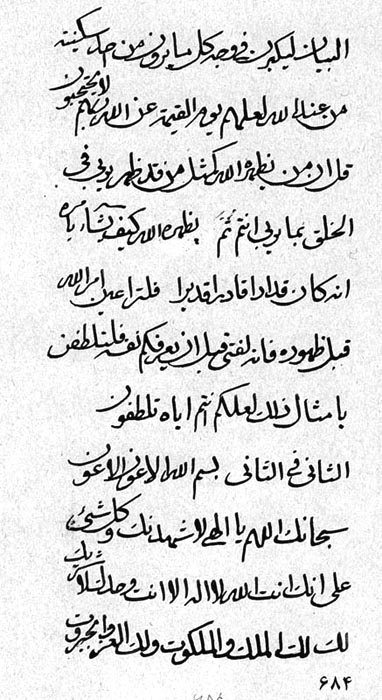 البيان ليكبرن في وجه كل ما يرون من احد سكينته
من عند الله لعلهم يوم القيمة عن الله ربهم لا يحتجبون
قل ان من يظهره الله كمثل من قد ظهر يربي في
الخلق بما يربي انتم ثم يظهره الله كيف يشاء بامره
انه كان قدادا قادرا قديرا فلتراعين امر الله
قبل ظهوره فانه لفتى قبل ان يعرفكم نفسه فلتلطفن
بامثال ذلك لعلكم انتم اياه تلطفون
الثاني في الثاني بسم الله الاعون الاعون
سبحانك اللهم يا الهي لاشهدنك وكل شيء
على انك انت الله لا اله الا انت وحدك لا شريك
لك لك الملك والملكوت ولك العز والجبروت
٦٨٤